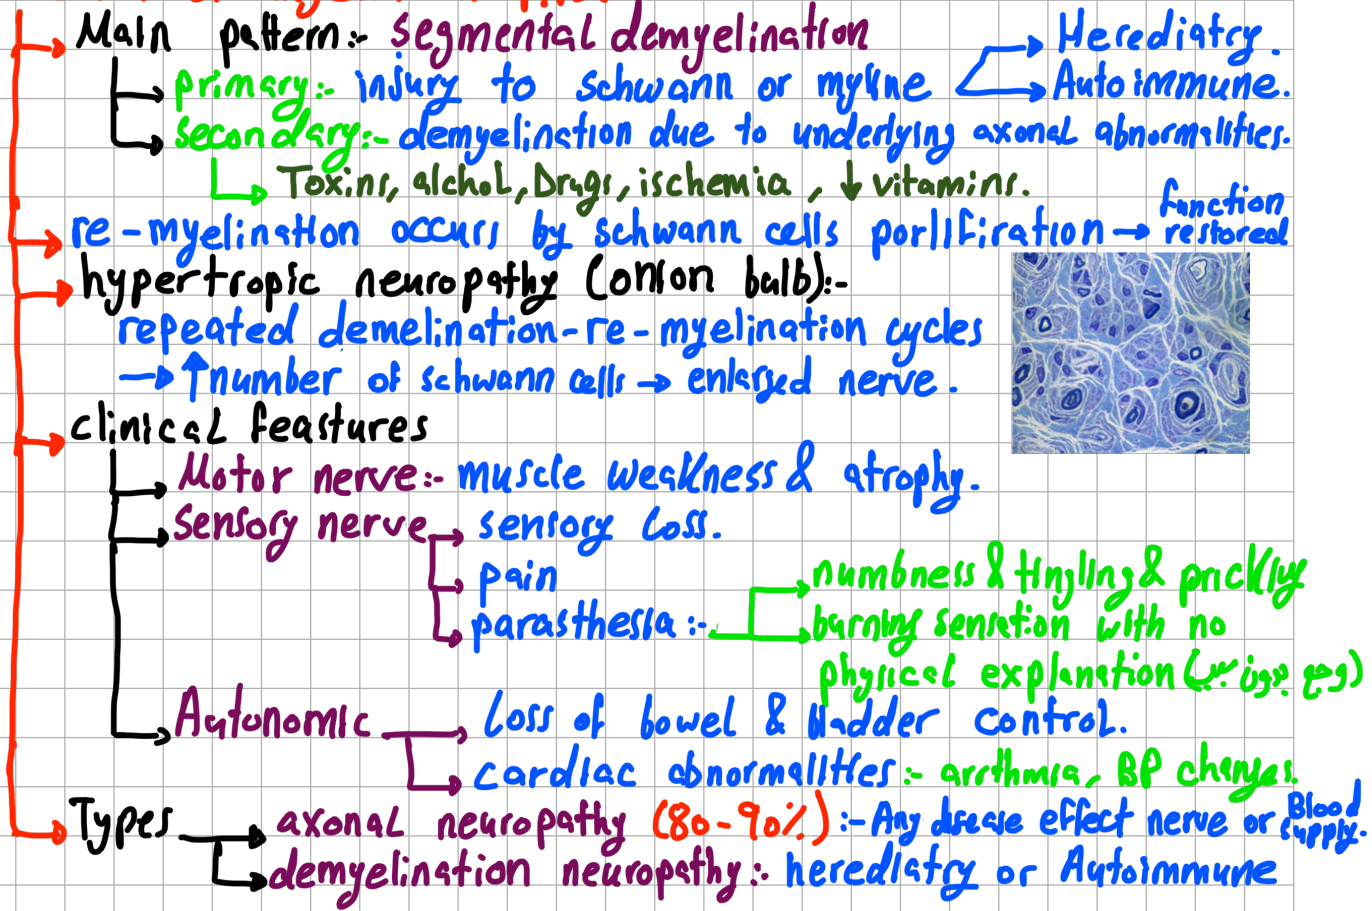 Main pattern:- segmental demyelination
Herediatry.
primary:- injury to schwann or myline
Autoimmune.
secondary:- demyelination due to underlying axonal abnormalities.
Toxins, alchol, Drugs, ischemia, ↓ vitamins.
re-myelination occurs by schwann cells porlifiration → function restored
hypertropic neuropathy (onion bulb):-
repeated demelination-re-myelination cycles
→ ↑ number of schwann cells → enlarged nerve.
clinical feastures
Motor nerve:- muscle weakness & atrophy.
Sensory nerve
sensory loss.
pain
parasthesia:-
numbness & tingling & prickling
burning sensation with no
physical explanation (وجع بدون سبب)
Autonomic
loss of bowel & bladder control.
cardiac abnormalities:- arrthmia, BP changes.
Types
axonal neuropathy (80-90%):- Any disease effect nerve or Blood supply.
demyelination neuropathy:- herediatry or Autoimmune